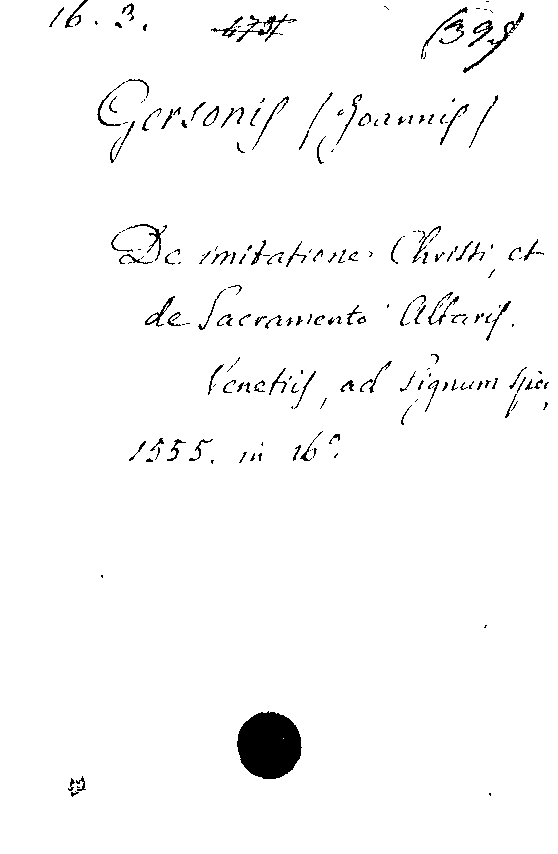 16. 3. (39.)
Gersonis (Joannis)
De imitatione Christi, et
de Sacramento Altaris.
Venetiis, ad Signum
1555. in 16º.